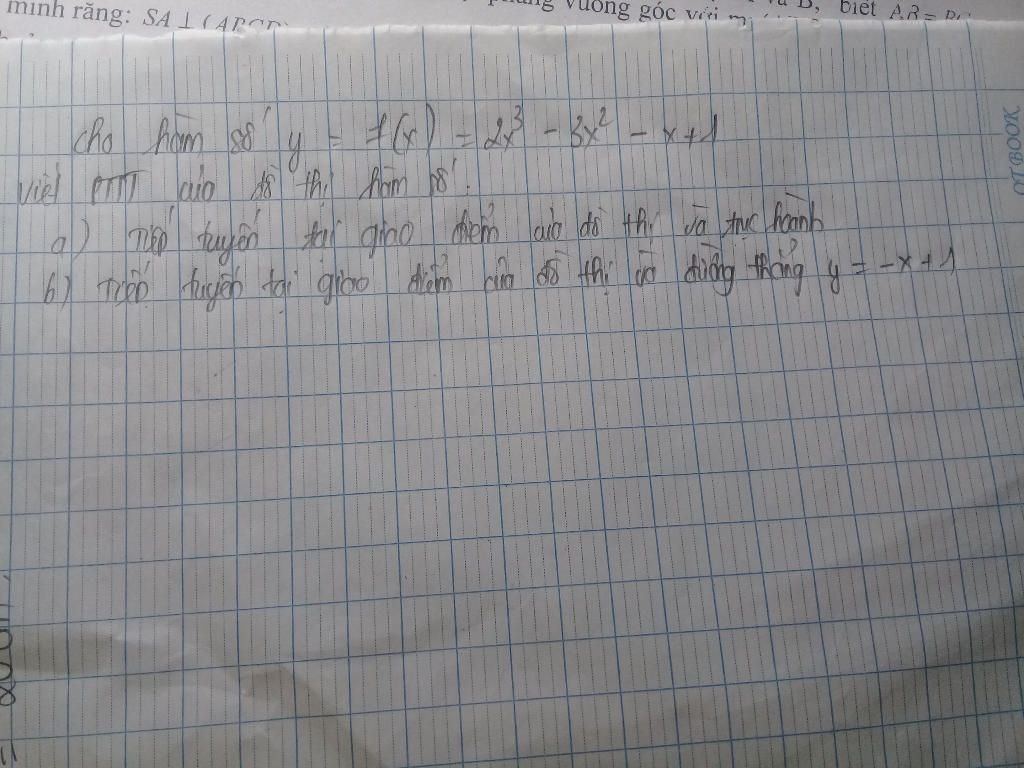 minh rằng: SA ⊥ (ABCD)
vuông góc với
B, biết AB = BC
OTBOOK
Cho hàm số y = f(x) = 2x³ - 3x² - x + 1
Viết PTTT của đồ thị hàm số.
a) Tiếp tuyến tại giao điểm của đồ thị và trục hoành
b) Tiếp tuyến tại giao điểm của đồ thị và đường thẳng y = -x + 1